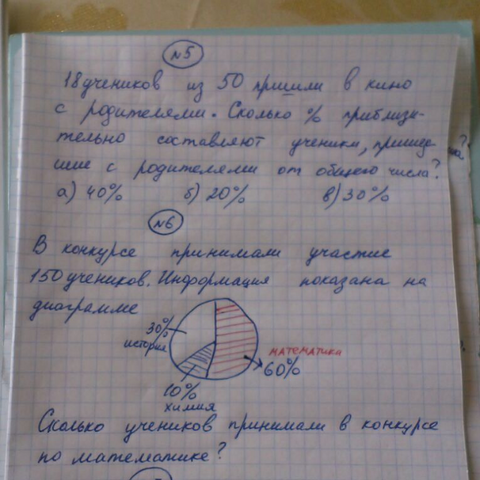 №5
18 учеников из 50 пришли в кино
с родителями. Сколько % приблизи-
тельно составляют ученики, пришед-
шие с родителями от общего числа?
а) 40% б) 20% в) 30%
№6
В конкурсе принимали участие
150 учеников. Информация показана на
диаграмме
30%
история
математика
60%
10%
химия
Сколько учеников принимали в конкурсе
по математике?